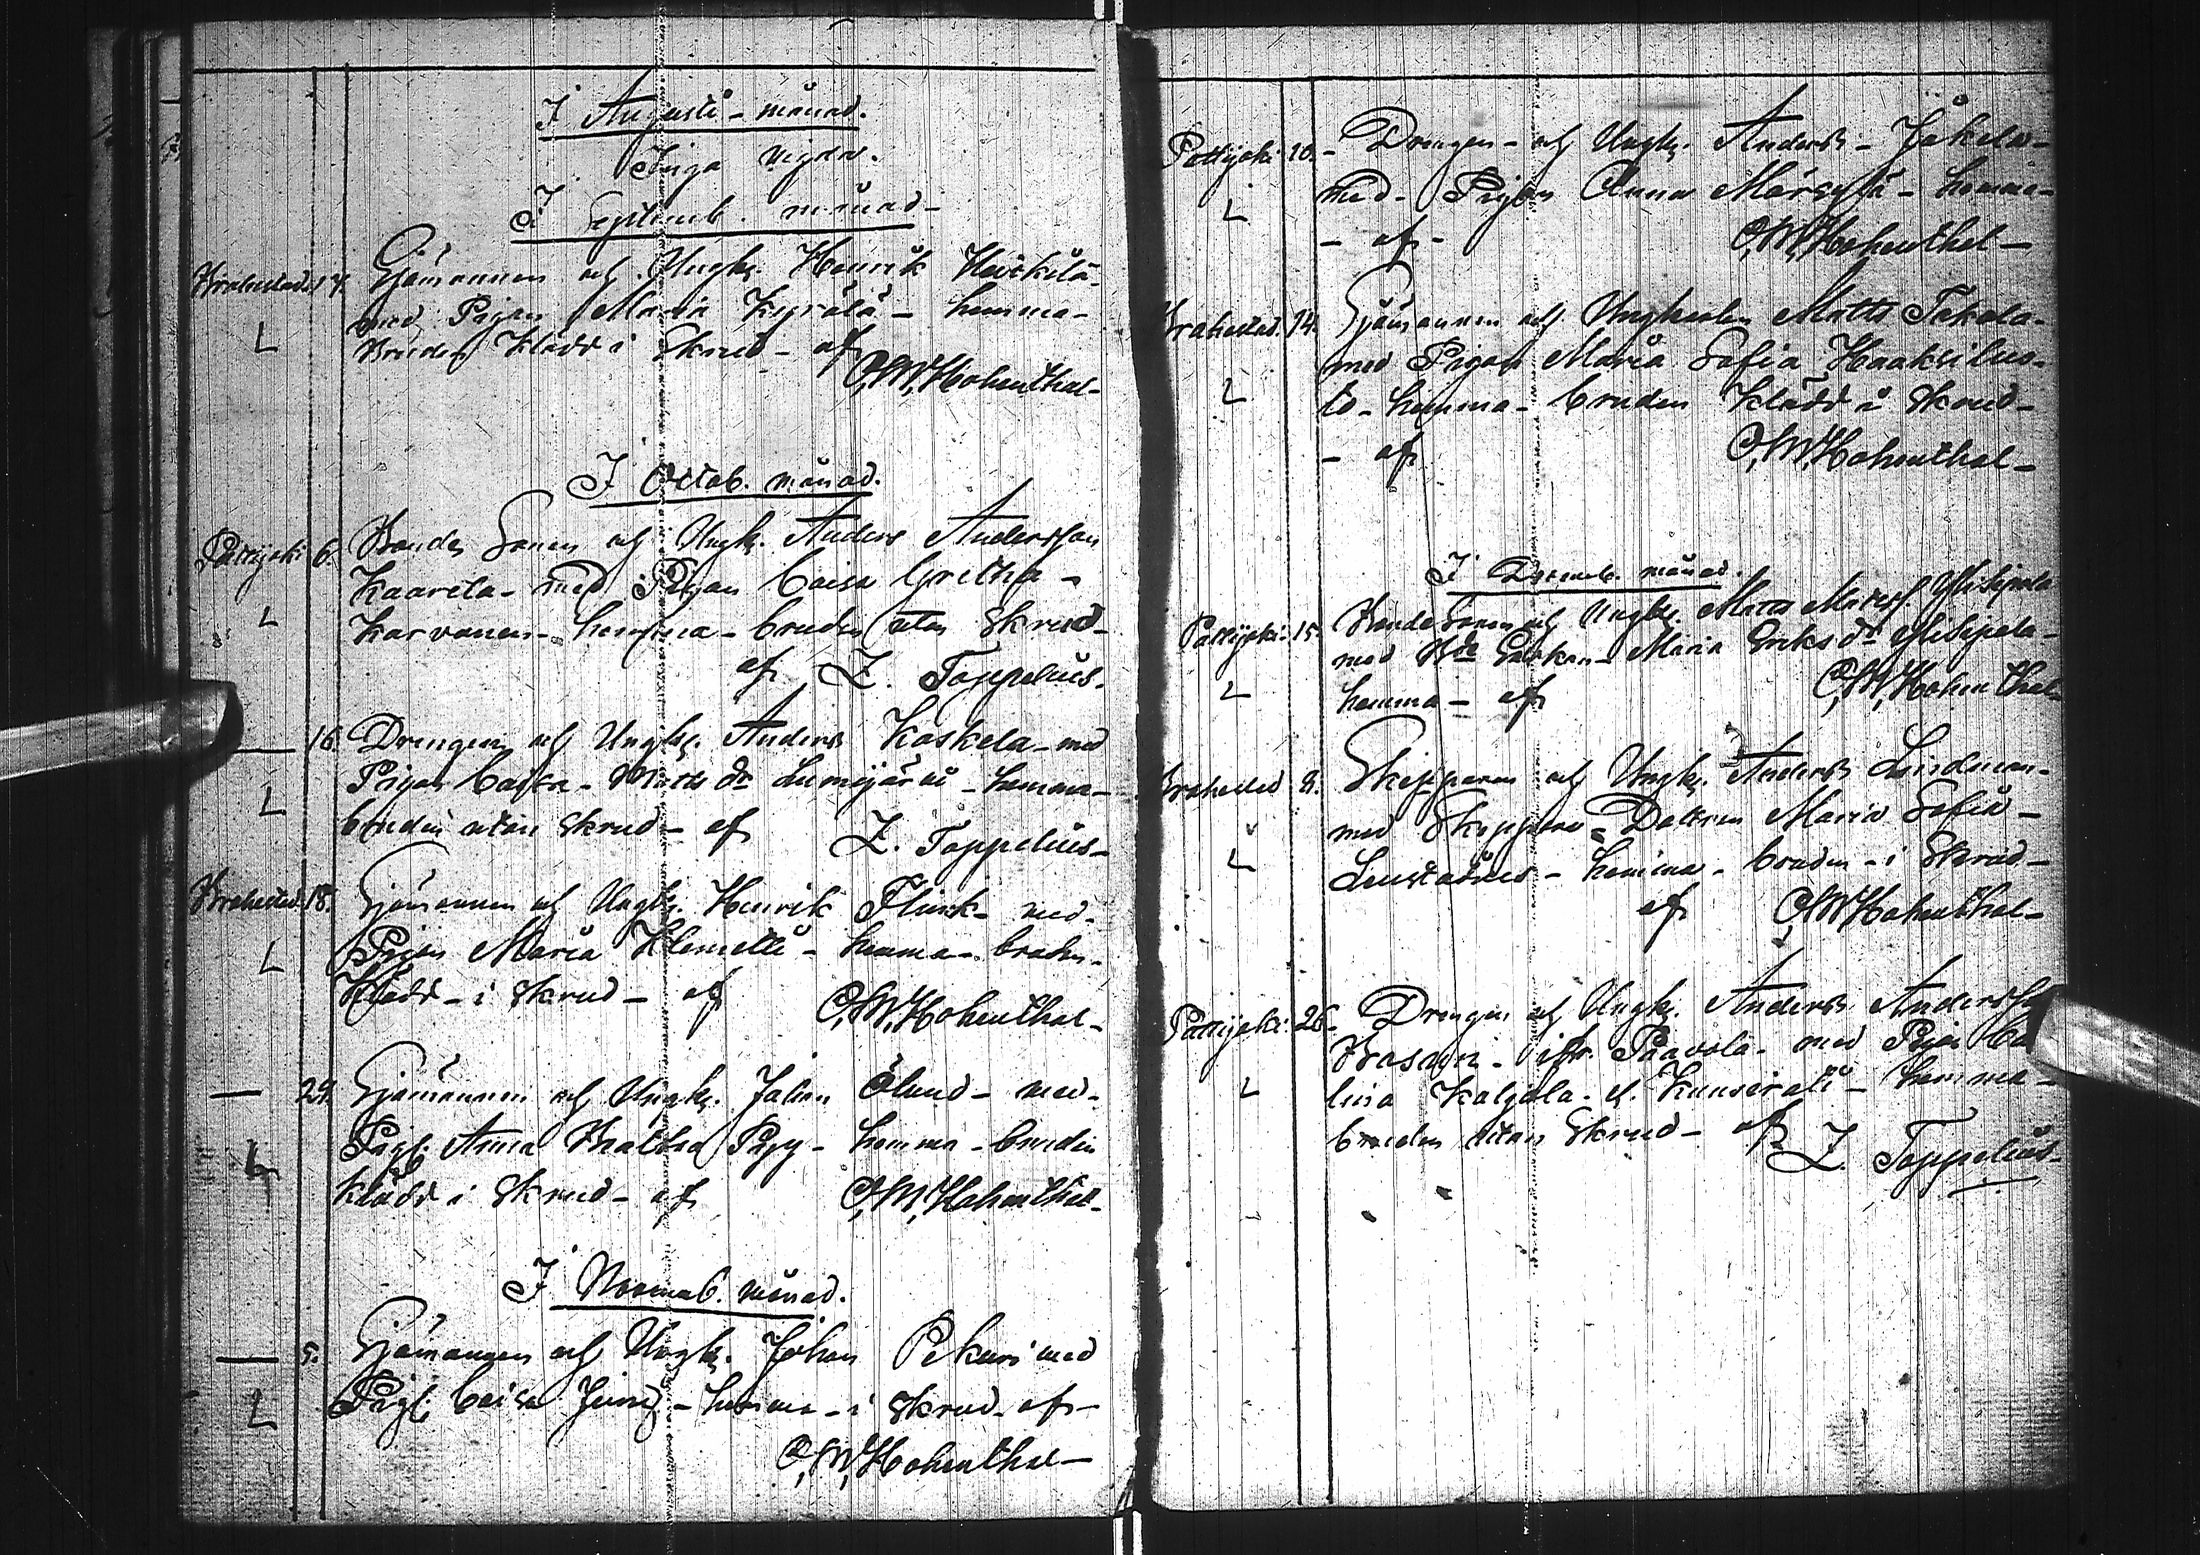 I Augusti - månad.
Inga vigda.
I Septemb. månad -
Brahestad. 17. Sjömannen och Ungk. Henrik Heickilä -
med Pigan Maria Kyrölä - hemma -
L bruden klädd i Skrud - af
C, M, Hohenthal -
I Octob. månad.
Pattijoki 6. Bonde Sonen och Ungk. Anders Andersson
Kaarela - med Pigan Caisa Gretha -
L Karvonen - hemma - bruden utan Skrud -
af Z. Toppelius.
— 16. Drengen och Ungk. Anders Koskela - med
Pigan Caisa - Matts dr Lumijärvi - hemma -
L bruden utan Skrud - af Z. Toppelius -
Brahestad. 18. Sjömannen och Ungk. Henrik Flink - med -
L Pigan Maria Klemetti - hemma - bruden -
Klädd - i Skrud - af C, M, Hohenthal -
— 29. Sjömannen och Ungk. Johan Ölund - med -
Pig. Anna Pyy - hemma - bruden
L klädd i Skrud - af C, M, Hohenthal -
I Novemb. månad.
— 5. Sjömannen och Ungk. Johan Pekuri med
L Pig. Caisa - hemma - i Skrud - af -
C, M, Hohenthal -
Pattijoki 10. - Drengen - och Ungk. Anders - Jokela -
L med - Pigan Anna - hemma -
- af - C, M, Hohenthal -
Brahestad. 14. Sjömannen och Ungkarlen Matts Tokola -
med Pigan Maria Sofia Haaksilus-
L to - hemma - bruden Klädd i Skrud -
- af C, M, Hohenthal -
I Decemb. månad.
Pattijoki. 15. Bonde Sonen och Ungk. Matts Matss. Ylisipola
med Bde Enkan - Maria Eriks dr Ylisipola -
L hemma - af C, M, Hohenthal
Brahestad 9. Skepparen och Ungk. Anders Lindman -
med Skeppare = Dottren Maria Sofia -
L - hemma - bruden - i Skrud -
af C, M, Hohenthal -
Pattijoki. 26. - Drengen och Ungk. Anders Anderss
ifr. Paavola - med Pigan Ca
L lina Kalapla - hemma -
bruden utan Skrud - af
Z. Toppelius -